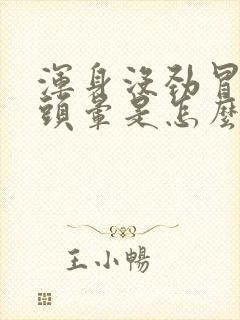 渾身沒勁冒
頭暈是怎麼
王小暢